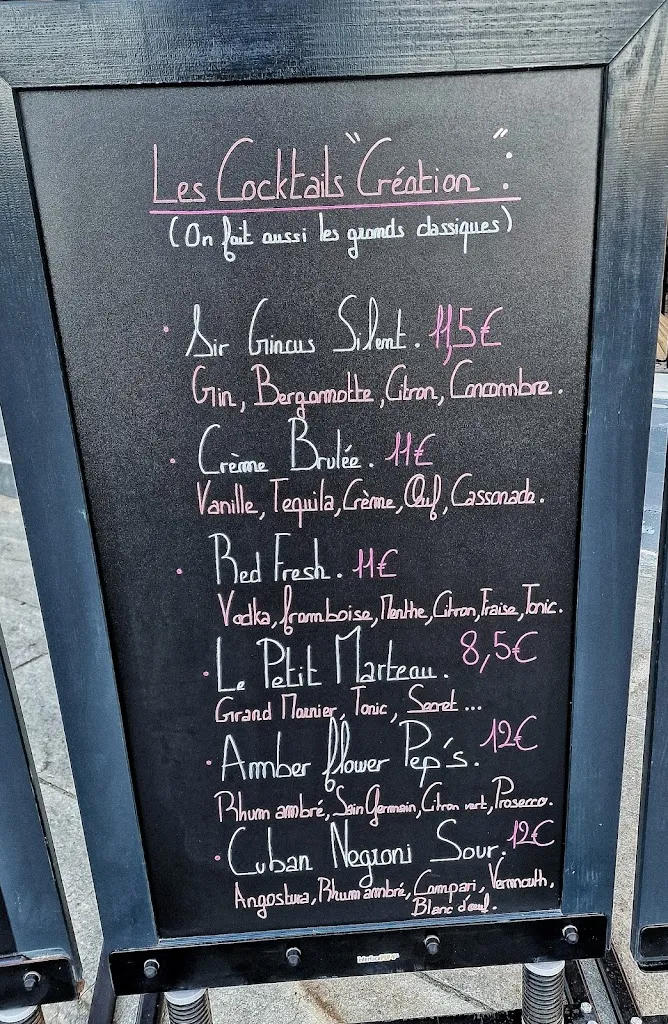 Les Cocktails "Création":
(On fait aussi les grands classiques)
• Sir Gincus Silent. 11,5€
Gin, Bergamotte, Citron, Concombre.
• Crème Brulée. 11€
Vanille, Tequila, Crème, Œuf, Cassonade.
• Red Fresh. 11€
Vodka, framboise, Menthe, Citron, Fraise, Tonic.
• Le Petit Marteau. 8,5€
Grand Marnier, Tonic, Secret...
• Amber flower Pep's. 12€
Rhum ambré, Sain Germain, Citron vert, Prosecco.
• Cuban Negroni Sour. 12€
Angostura, Rhum ambré, Campari, Vermouth,
Blanc d'œuf.